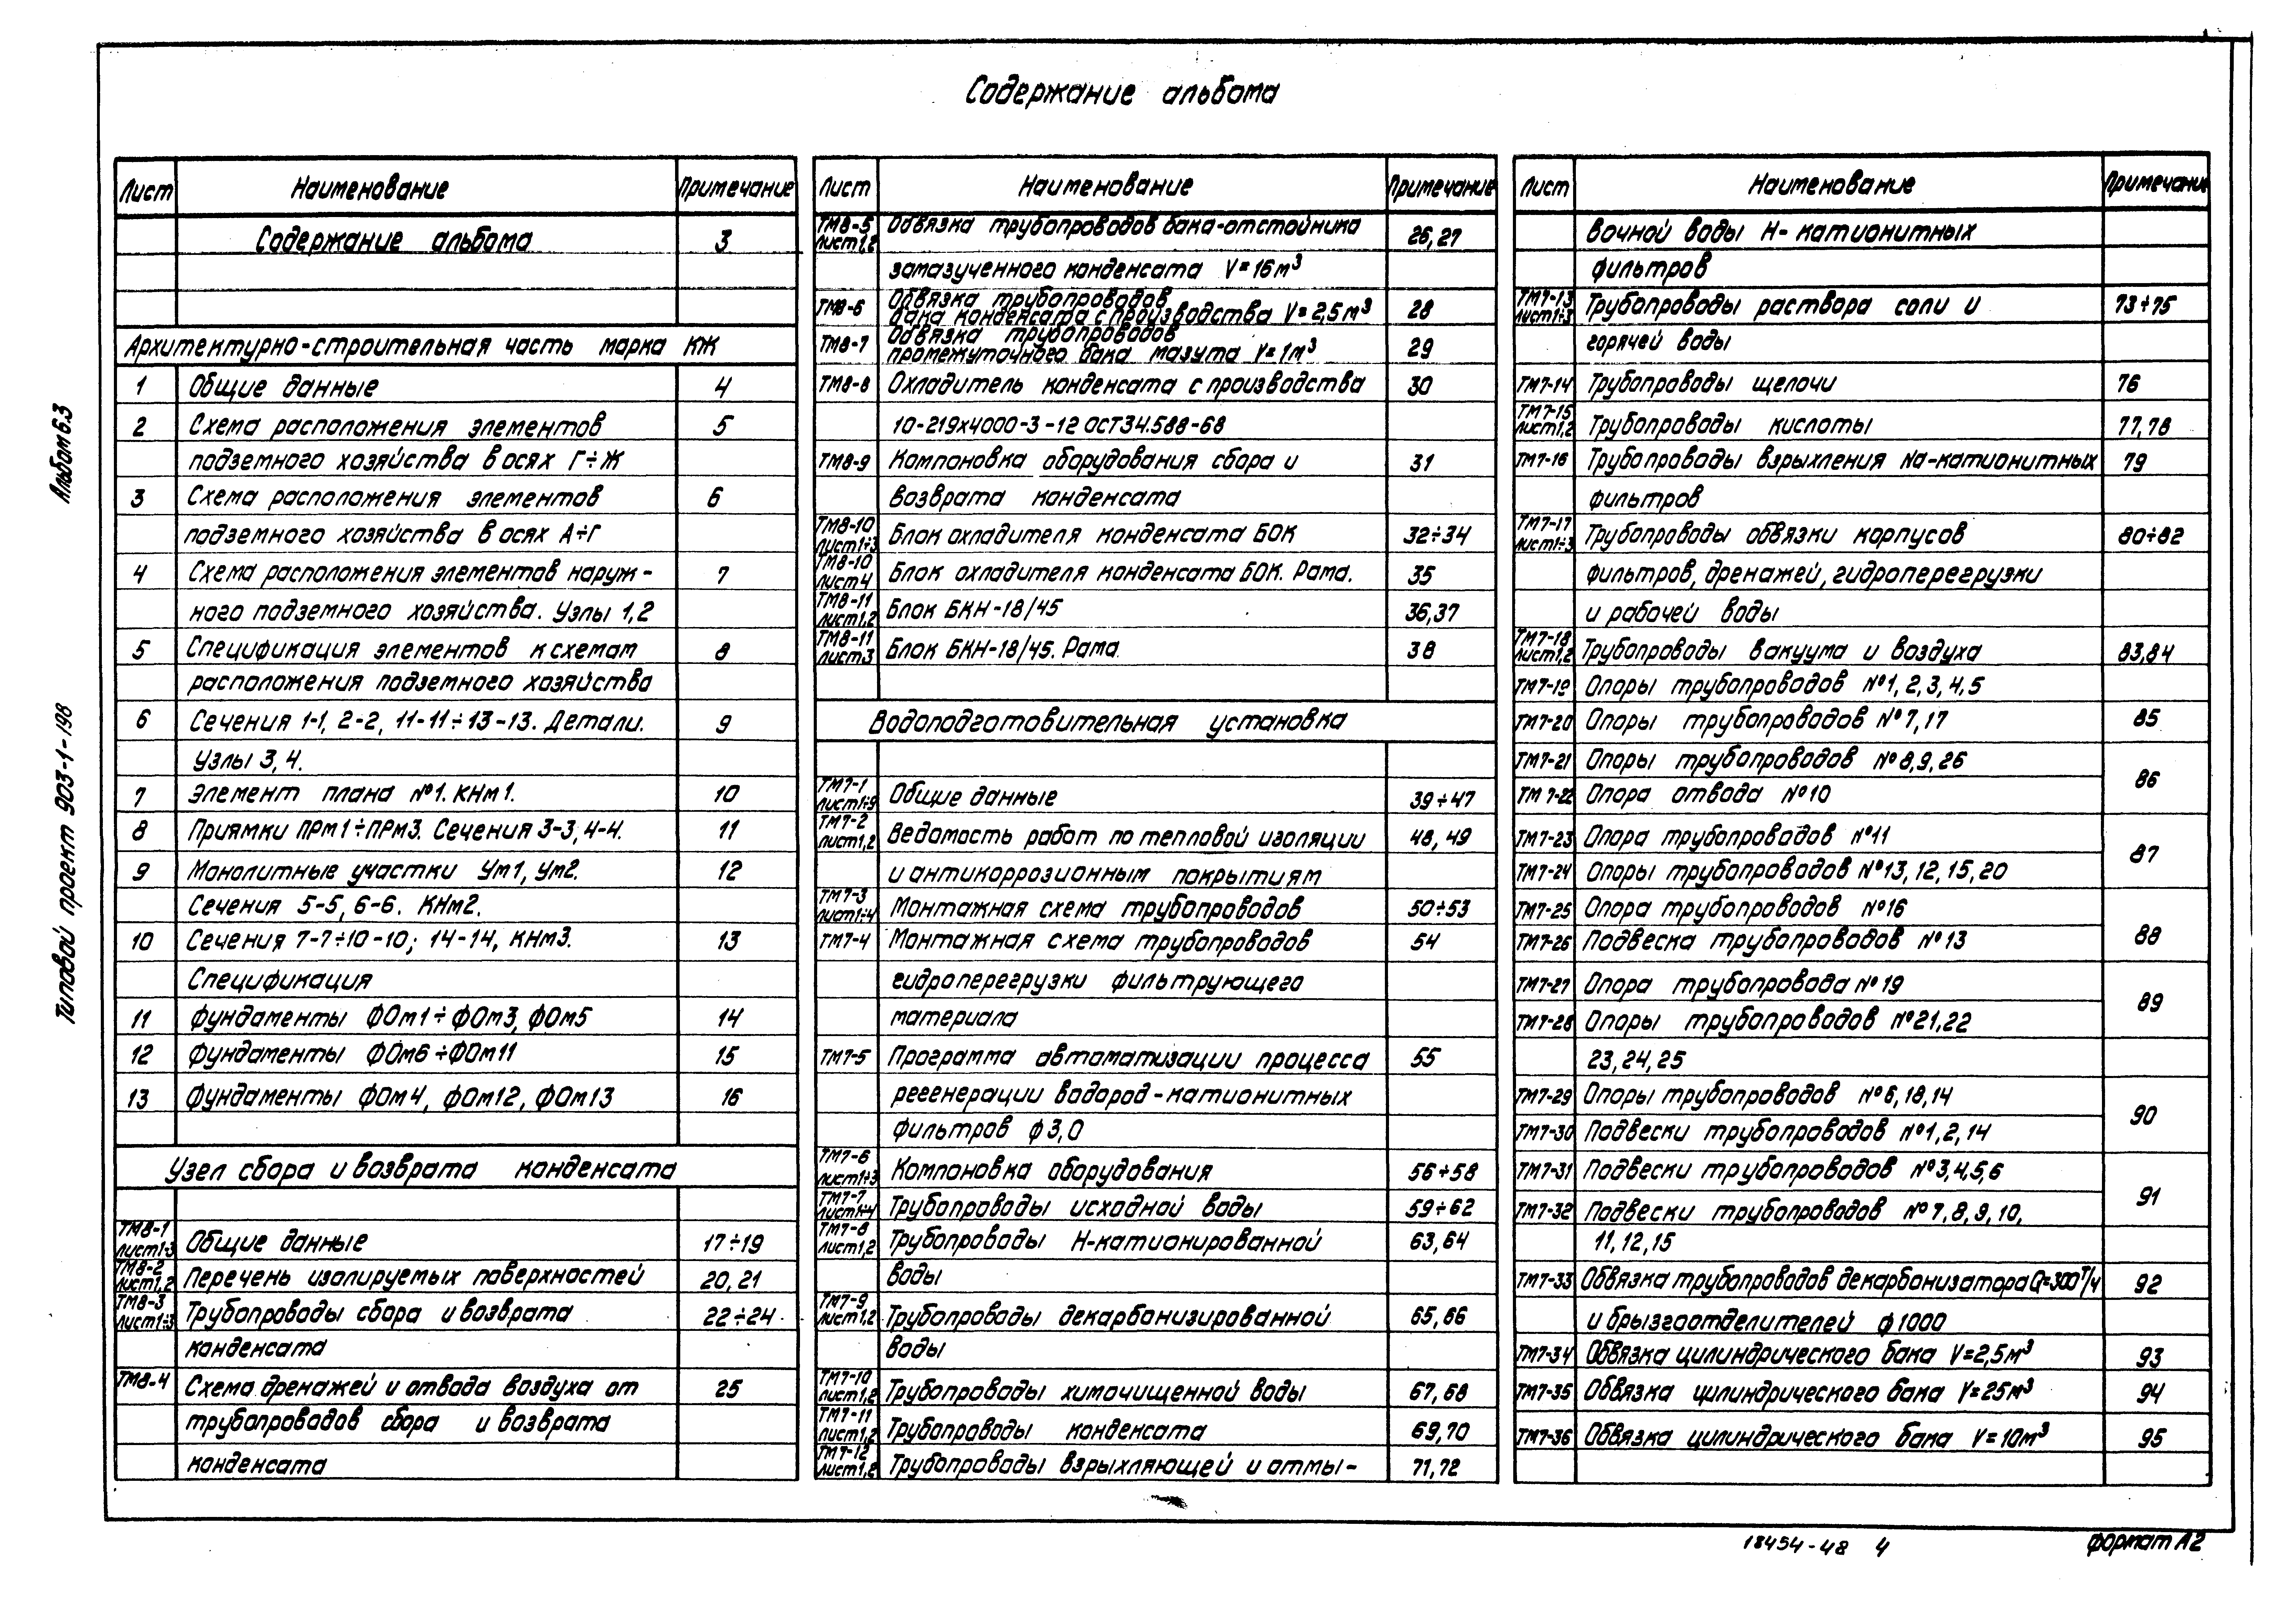 Содержание альбома
Альбом 63
Типовой проект 903-1-198
Лист Наименование Примечание
Содержание альбома 3
Архитектурно-строительная часть марка КЖ
1 Общие данные 4
2 Схема расположения элементов 5
подземного хозяйства в осях Г÷Ж
3 Схема расположения элементов 6
подземного хозяйства в осях А÷Г
4 Схема расположения элементов наруж- 7
ного подземного хозяйства. Узлы 1,2
5 Спецификация элементов к схемам 8
расположения подземного хозяйства
6 Сечения 1-1, 2-2, 11-11÷13-13. Детали. 9
Узлы 3,4.
7 Элемент плана №1. КНм1. 10
8 Приямки ПРм1÷ПРм3. Сечения 3-3, 4-4. 11
9 Монолитные участки Ум1, Ум2. 12
Сечения 5-5, 6-6. КНм2.
10 Сечения 7-7÷10-10; 14-14, КНм3. 13
Спецификация
11 Фундаменты ФОм1÷ФОм3, ФОм5 14
12 Фундаменты ФОм6÷ФОм11 15
13 Фундаменты ФОм4, ФОм12, ФОм13 16
Узел сбора и возврата конденсата
ТМ8-1
Лист1÷3 Общие данные 17÷19
ТМ8-2
Лист1,2 Перечень изолируемых поверхностей 20,21
ТМ8-3
Лист1÷3 Трубопроводы сбора и возврата 22÷24
конденсата
ТМ8-4 Схема дренажей и отвода воздуха от 25
трубопроводов сбора и возврата
конденсата
Лист Наименование Примечание
ТМ8-5
Лист1,2 Обвязка трубопроводов бака-отстойника 26,27
замазученного конденсата V=16м³
ТМ8-6 Обвязка трубопроводов
бака конденсата с производства V=2,5м³ 28
ТМ8-7 Обвязка трубопроводов
промежуточного бака мазута V=1м³ 29
ТМ8-8 Охладитель конденсата с производства 30
10-219х4000-3-12 ОСТ34.588-68
ТМ8-9 Компоновка оборудования сбора и 31
возврата конденсата
ТМ8-10
Лист1÷3 Блок охладителя конденсата БОК 32÷34
ТМ8-10
Лист4 Блок охладителя конденсата БОК. Рама. 35
ТМ8-11
Лист1,2 Блок БКН-18/45 36,37
ТМ8-11
Лист3 Блок БКН-18/45. Рама. 38
Водоподготовительная установка
ТМ7-1
Лист1÷9 Общие данные 39÷47
ТМ7-2
Лист1,2 Ведомость работ по тепловой изоляции 48,49
и антикоррозионным покрытиям
ТМ7-3
Лист1÷4 Монтажная схема трубопроводов 50÷53
ТМ7-4 Монтажная схема трубопроводов 54
гидроперегрузки фильтрующего
материала
ТМ7-5 Программа автоматизации процесса 55
регенерации водород-катионитных
фильтров ф3,0
ТМ7-6
Лист1÷3 Компоновка оборудования 56÷58
ТМ7-7
Лист1÷4 Трубопроводы исходной воды 59÷62
ТМ7-8
Лист1,2 Трубопроводы Н-катионированной 63,64
воды
ТМ7-9
Лист1,2 Трубопроводы декарбонизированной 65,66
воды
ТМ7-10
Лист1,2 Трубопроводы химочищенной воды 67,68
ТМ7-11
Лист1,2 Трубопроводы конденсата 69,70
ТМ7-12
Лист1,2 Трубопроводы взрыхляющей и отмы- 71,72
Лист Наименование Примечание
вочной воды Н-катионитных
фильтров
ТМ7-13
Лист1÷3 Трубопроводы раствора соли и 73÷75
горячей воды
ТМ7-14 Трубопроводы щелочи 76
ТМ7-15
Лист1,2 Трубопроводы кислоты 77,78
ТМ7-16 Трубопроводы взрыхления Na-катионитных 79
фильтров
ТМ7-17
Лист1÷3 Трубопроводы обвязки корпусов 80÷82
фильтров, дренажей, гидроперегрузки
и рабочей воды
ТМ7-18
Лист1,2 Трубопроводы вакуума и воздуха 83,84
ТМ7-19 Опоры трубопроводов №1,2,3,4,5
ТМ7-20 Опоры трубопроводов №7,17 85
ТМ7-21 Опоры трубопроводов №8,9,26
86
ТМ7-22 Опора отвода №10
ТМ7-23 Опора трубопроводов №11
87
ТМ7-24 Опоры трубопроводов №13,12,15,20
ТМ7-25 Опора трубопроводов №16
88
ТМ7-26 Подвеска трубопроводов №13
ТМ7-27 Опора трубопровода №19
89
ТМ7-28 Опоры трубопроводов №21,22
23,24,25
ТМ7-29 Опоры трубопроводов №6,18,14
90
ТМ7-30 Подвески трубопроводов №1,2,14
ТМ7-31 Подвески трубопроводов №3,4,5,6
91
ТМ7-32 Подвески трубопроводов №7,8,9,10,
11,12,15
ТМ7-33 Обвязка трубопроводов декарбонизатора Q=300т/ч 92
и брызгоотделителей ф1000
ТМ7-34 Обвязка цилиндрического бака V=2,5м³ 93
ТМ7-35 Обвязка цилиндрического бака V=25м³ 94
ТМ7-36 Обвязка цилиндрического бака V=10м³ 95
18454-48 4
Формат А2